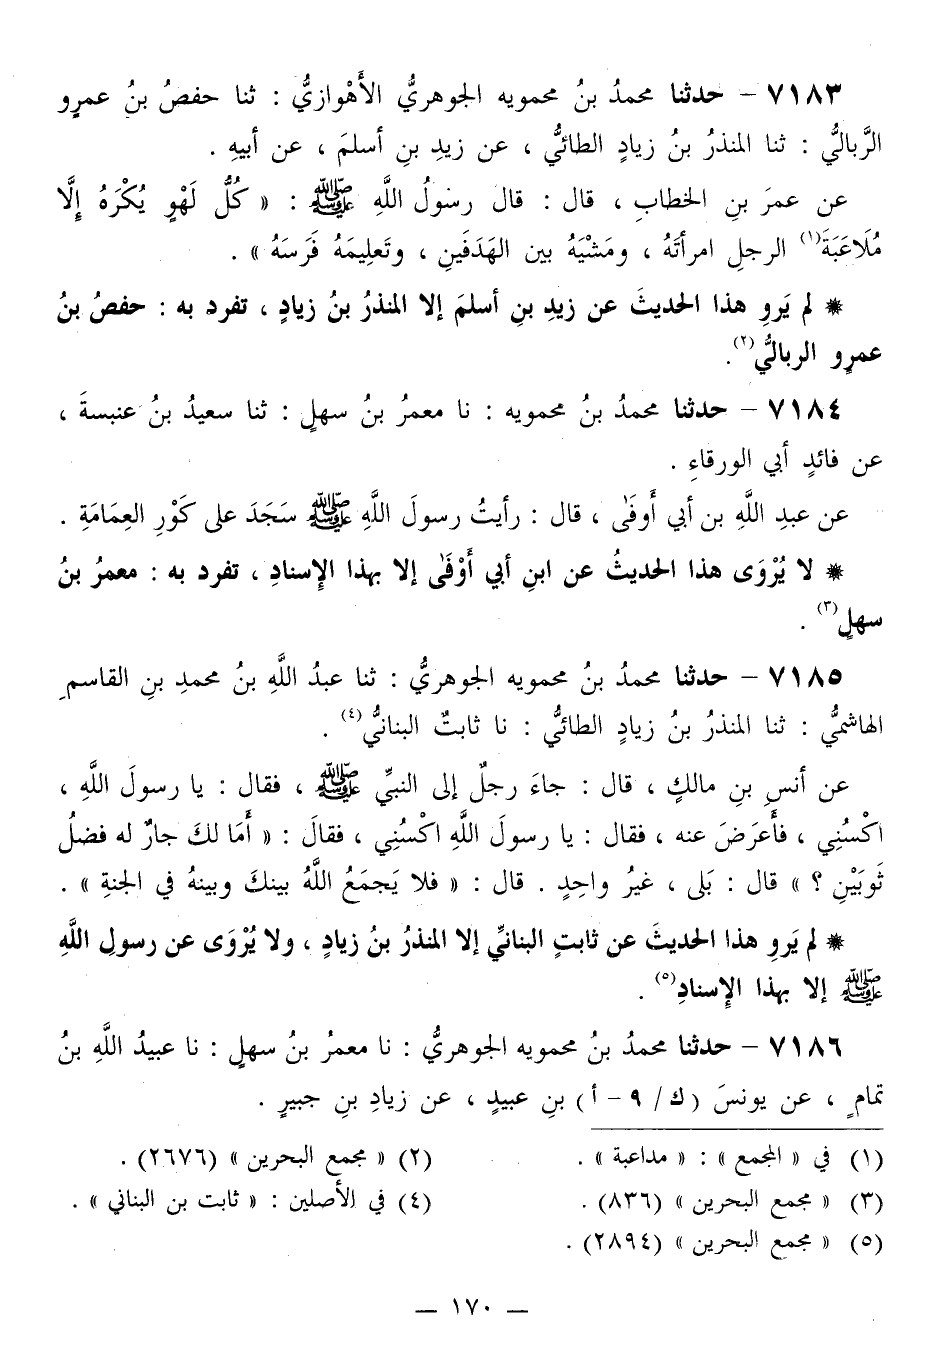 ٧١٨٣ – حدثنا محمدُ بنُ محمويه الجوهريُّ الأَهْوازيُّ : ثنا حفصُ بنُ عمرٍو
الرَّباليُّ : ثنا المنذرُ بنُ زيادٍ الطائيُّ ، عن زيدِ بنِ أسلمَ ، عن أبيهِ .
عن عمرَ بنِ الخطابِ ، قال : قال رسولُ اللَّهِ ﷺ : « كُلُّ لَهْوٍ يُكْرَهُ إِلَّا
مُلَاعَبَةَ(١) الرجلِ امرأتَهُ ، ومَشْيَهُ بين الهَدَفَينِ ، وتَعلِيمَهُ فَرَسَهُ » .
* لم يَروِ هذا الحديثَ عن زيدِ بنِ أسلمَ إلا المنذرُ بنُ زيادٍ ، تفرد به : حفصُ بنُ
عمرٍو الرباليُّ(٢).
٧١٨٤ – حدثنا محمدُ بنُ محمويه : نا معمرُ بنُ سهلٍ : ثنا سعيدُ بنُ عنبسةَ ،
عن فائدٍ أبي الورقاءِ .
عن عبدِ اللَّهِ بن أبي أَوفَى ، قال : رأيتُ رسولَ اللَّهِ ﷺ سَجَدَ على كَوْرِ العِمَامَةِ .
* لا يُرْوَى هذا الحديثُ عن ابنِ أبي أَوْفَى إلا بهذا الإسنادِ ، تفرد به : معمرُ بنُ
سهلٍ(٣) .
٧١٨٥ – حدثنا محمدُ بنُ محمويه الجوهريُّ : ثنا عبدُ اللَّهِ بنُ محمدِ بنِ القاسمِ
الهاشميُّ : ثنا المنذرُ بنُ زيادٍ الطائيُّ : نا ثابتٌ البنانيُّ(٤) .
عن أنسِ بنِ مالكٍ ، قال : جاءَ رجلٌ إلى النبيِّ ﷺ ، فقال : يا رسولَ اللَّهِ ،
اكْسُنِي ، فأَعرَضَ عنه ، فقال : يا رسولَ اللَّهِ اكْسُنِي ، فقالَ : « أَمَا لكَ جارٌ له فضلُ
ثَوبَيْنِ ؟ » قال : بَلى ، غيرُ واحِدٍ . قال : « فلا يَجمَعُ اللَّهُ بينكَ وبينهُ في الجنةِ » .
* لم يَروِ هذا الحديثَ عن ثابتٍ البنانيِّ إلا المنذرُ بنُ زيادٍ ، ولا يُرْوَى عن رسولِ اللَّهِ
ﷺ إلا بهذا الإسنادِ(٥) .
٧١٨٦ – حدثنا محمدُ بنُ محمويه الجوهريُّ : نا معمرُ بنُ سهلٍ : نا عبيدُ اللَّهِ بنُ
تمامٍ ، عن يونسَ (ك/ ٩ – أ) بنِ عبيدٍ ، عن زيادِ بنِ جبيرٍ .
(١) في « المجمع » : « مداعبة » .
(٢) « مجمع البحرين » (٢٦٧٦) .
(٣) « مجمع البحرين » (٨٣٦) .
(٤) في الأصلين : « ثابت بن البناني » .
(٥) « مجمع البحرين » (٢٨٩٤) .
— ١٧٠ —